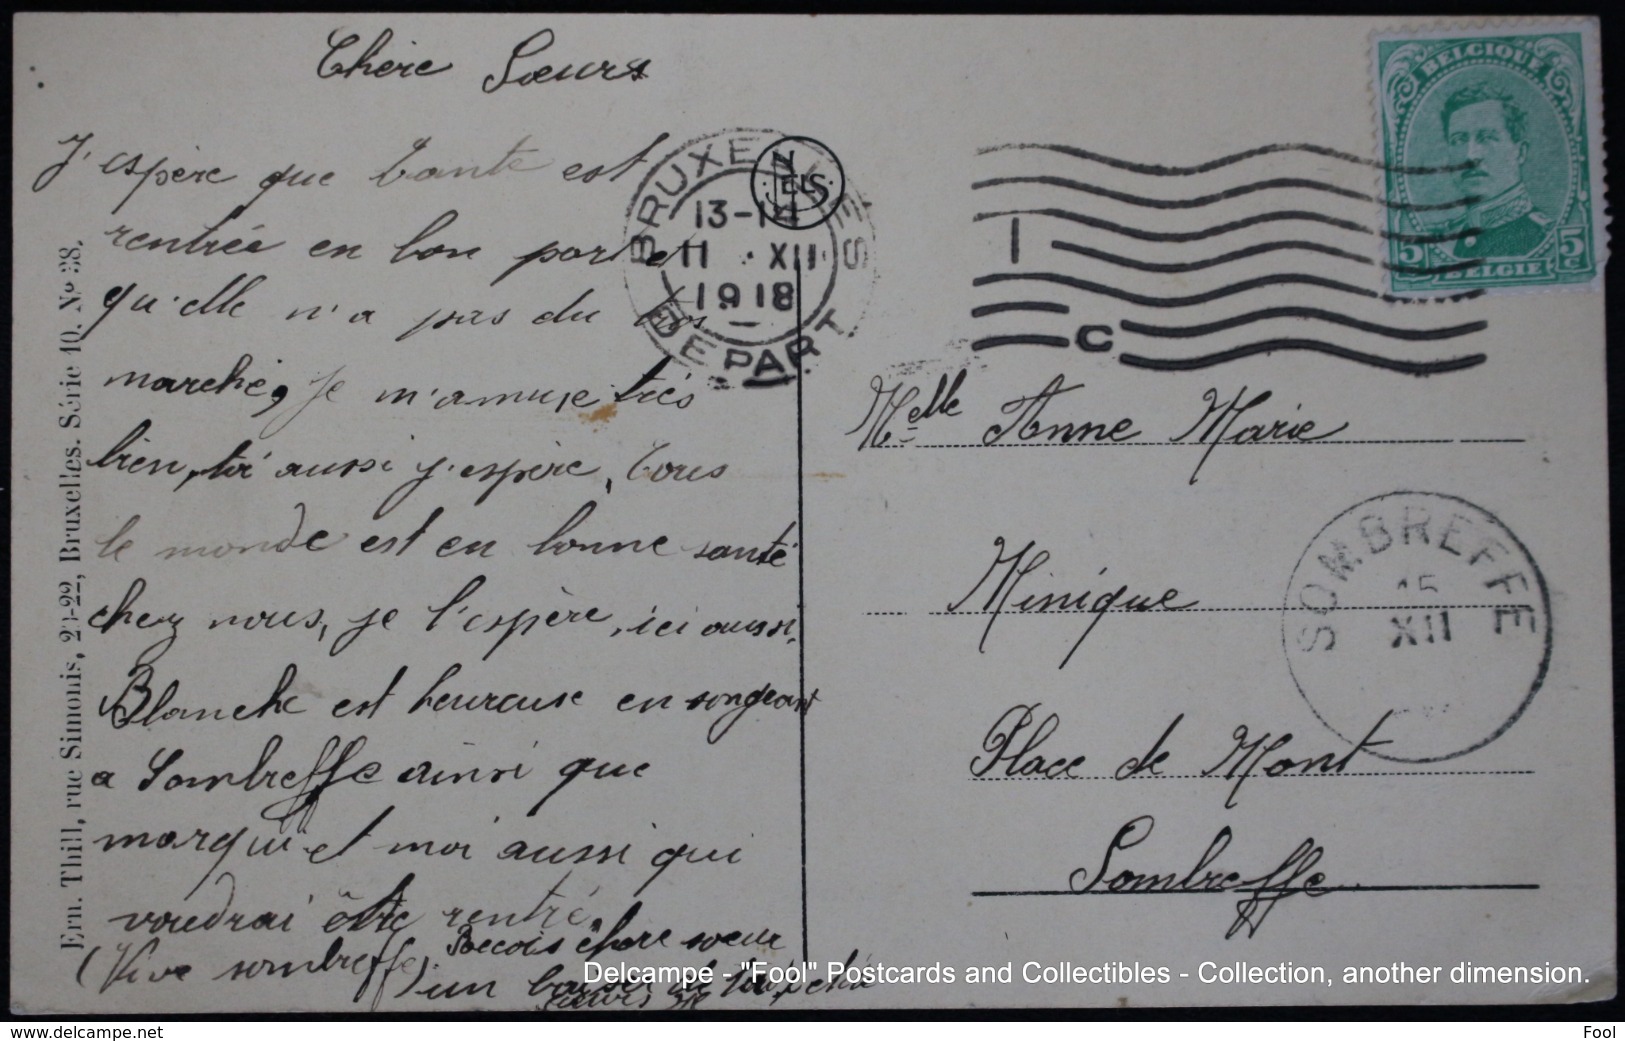 Chère Sœurs
J'espère que tante est
rentrée en bon porte et
qu'elle n'a pas du tros
marché, Je m'amuse très
bien, toi aussi j'espère, Tous
le monde est en bonne santé
chez nous, je l'espère, ici aussi,
Blanche est heureuse en songeant
a Sombreffe ainsi que
marqui et moi aussi qui
voudrai être rentré.
(Vive sombreffe). Recois chere soeur
un baiser de
Ern. Thill, rue Simonis, 20-22, Bruxelles. Série 10. No 38.
NELS
BRUXELLES
13-14
11 · XII
1918
DEPART
1 C
BELGIQUE
5c 5c
BELGIE
Melle Anne Marie
Minique
Place de Mont
Sombreffe
SOMBREFFE
15
XII
Delcampe - "Fool" Postcards and Collectibles - Collection, another dimension.
www.delcampe.net
Fool